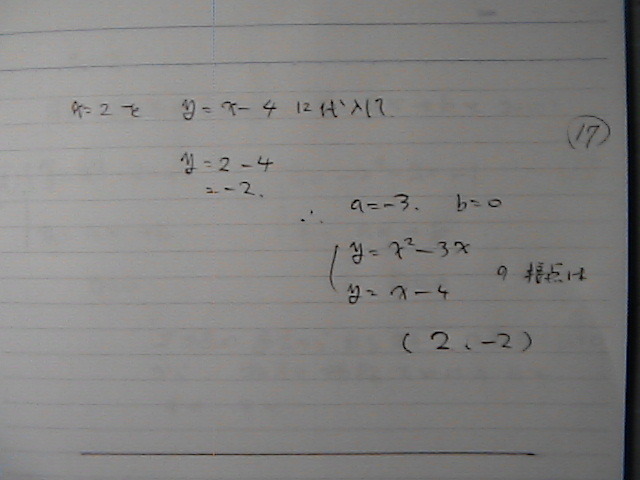 x=2を y=x-4に代入して
(17)
y=2-4
=-2.
∴ a=-3. b=0
y=x²-3x
y=x-4 の接点は
(2、-2)